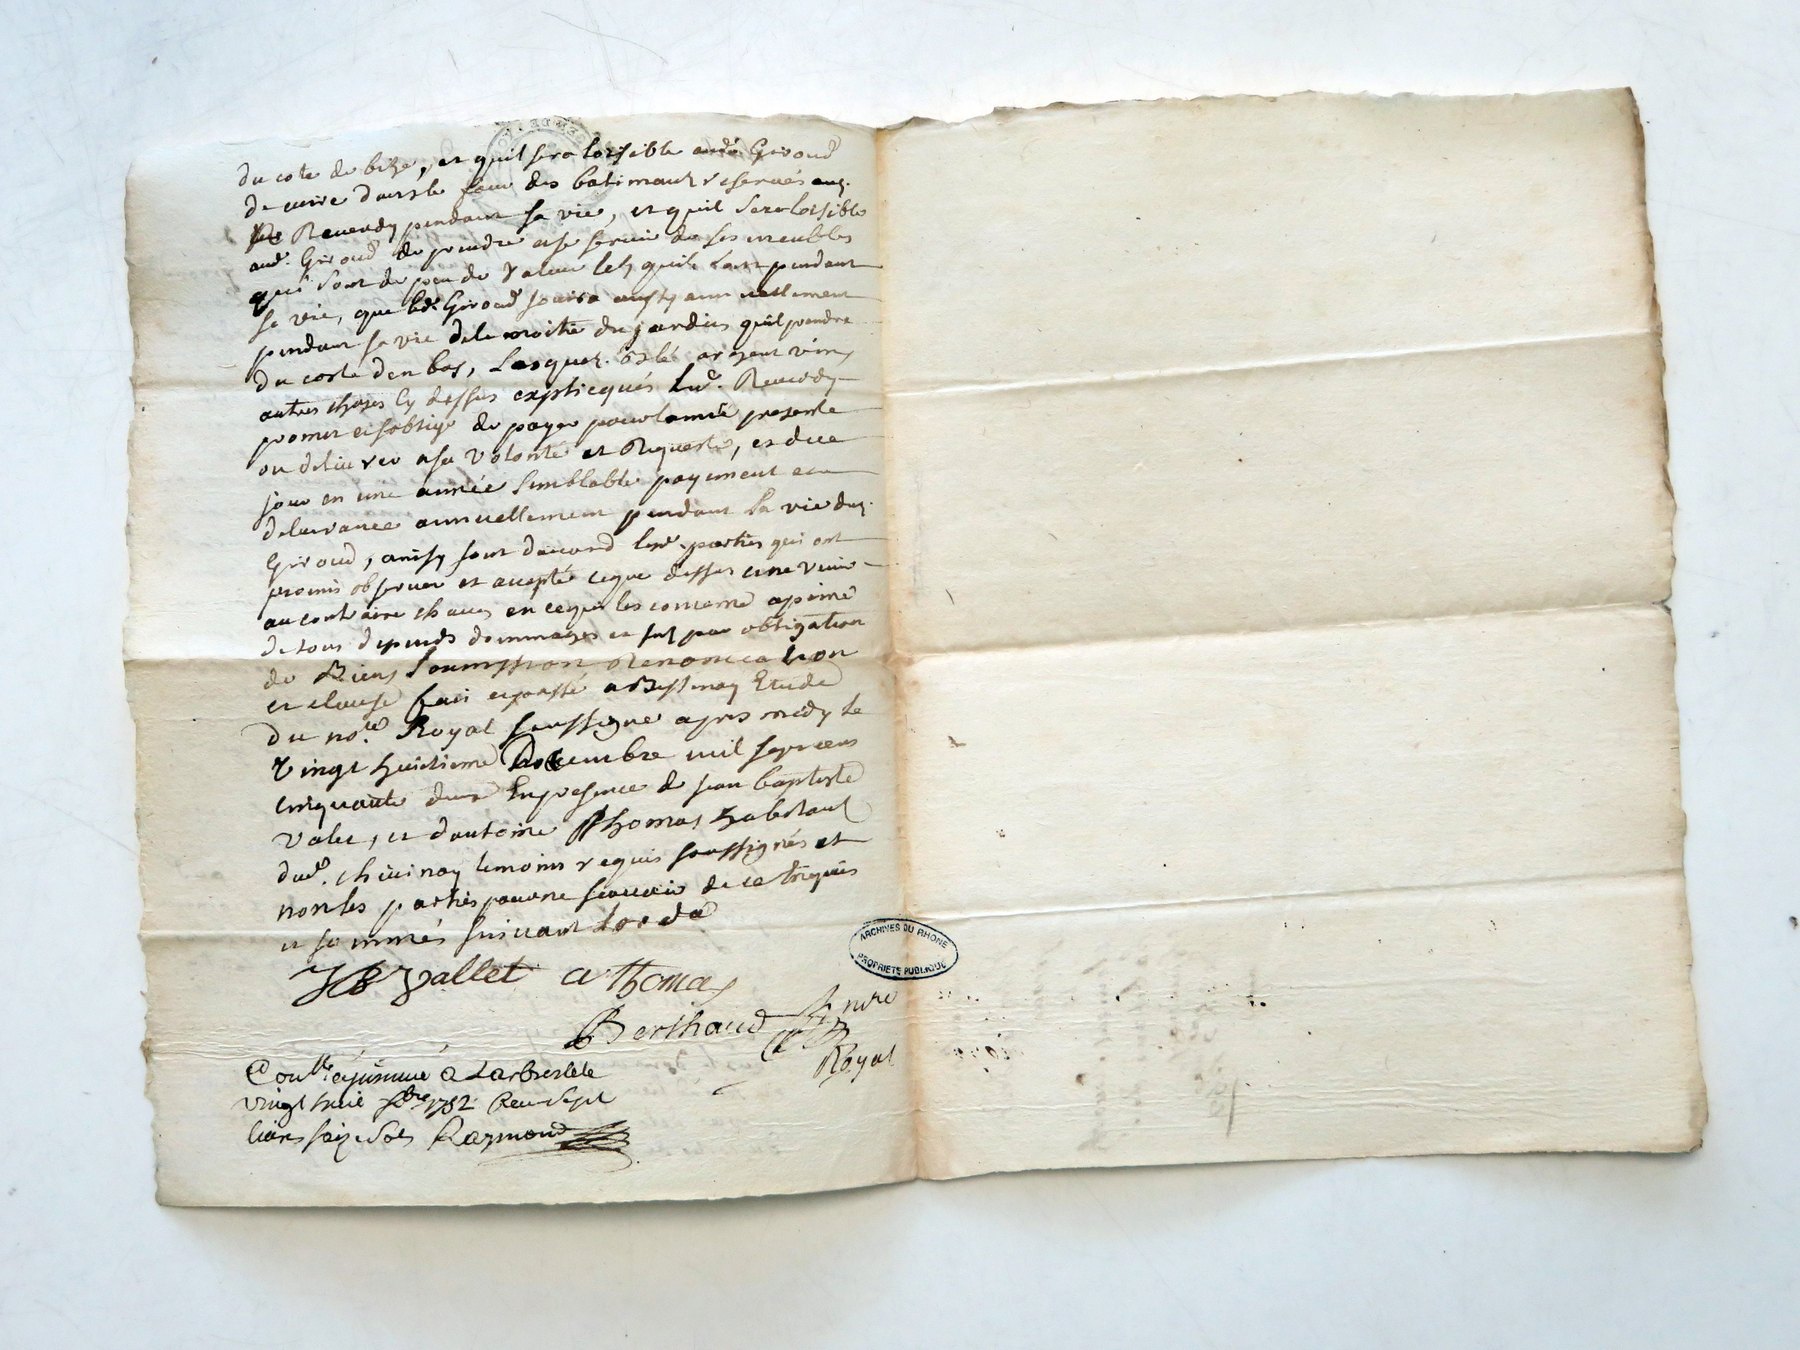 du cote de bize, et quil sera loizible audt Giroud
de cuire dans le four des batimants reservés aud.
Reverdy pendant sa vie, et quil sera loisible
aud. Giroud de prendre et se servir de ses meubles
qui sont de peu de valeur tels quils sont pendant
sa vie, que led. Giroud jouira aussy annuellement
pendant sa vie de la moitié du jardin quil prendra
du costé d'en bas, Lesquels blé argent vin
autres choses cy dessus explicqués led. Reverdy
promet et soblige de payer pour lannée presente
ou delivrer a sa volonté et Requeste, et du
jour en une année semblable payement et
delivrance annuellement pendant la vie dud.
Giroud, ainsy sont d'accord lesd. parties qui ont
promis observer et accepté ce que dessus et ne venir
au contraire chacun en ce que les concerne a peine
de tous depends dommages et int par obligation
de Biens soumission Renonciation
et clause fait et passé a Bessenay Etude
du nore Royal soussigné apres midy le
vingt huictieme Decembre mil sept cens
cinquante deux En presence de jean baptiste
valet, et d'antoine Thomas habitant
dud. chevinay temoins requis soussignés et
non les parties pour ne scavoir de ce enquis
et sommés suivant Lorde
JB Vallet a Thomas
Berthaud nore
Royal
Coulle ejusmué à Larbresle le
vingt huit xbre 1752 Reu sept
livres saize sols Raymond
ARCHIVES DU RHONE
PROPRIETE PUBLIQUE